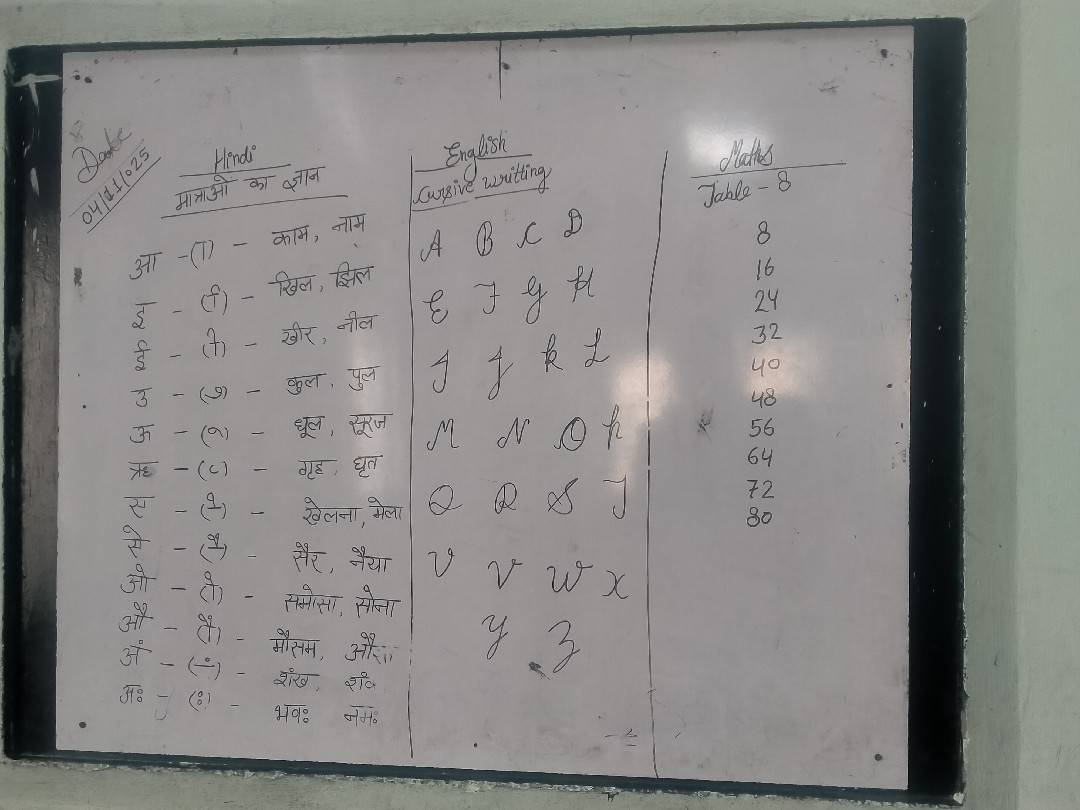 Date
04/11/025
Hindi
मात्राओं का ज्ञान
आ - (ा) - काम, नाम
इ - (ि) - खिल, झिल
ई - (ी) - खीर, नील
उ - (ु) - कुल, पुल
ऊ - (ू) - धूल, सूरज
ऋ - (ृ) - गृह, घृत
स - (े) - खेलना, मेला
से - (ै) - सैर, नैया
ओ - (ो) - समोसा, सोना
औ - (ौ) - मौसम,
अं - (ं) - शंख,
अः - (ः) - भवः नमः
English
Cursive writting
A B C D
E F G H
I J K L
M N O P
Q R S T
U V W X
Y Z
Maths
Table - 8
8
16
24
32
40
48
56
64
72
80